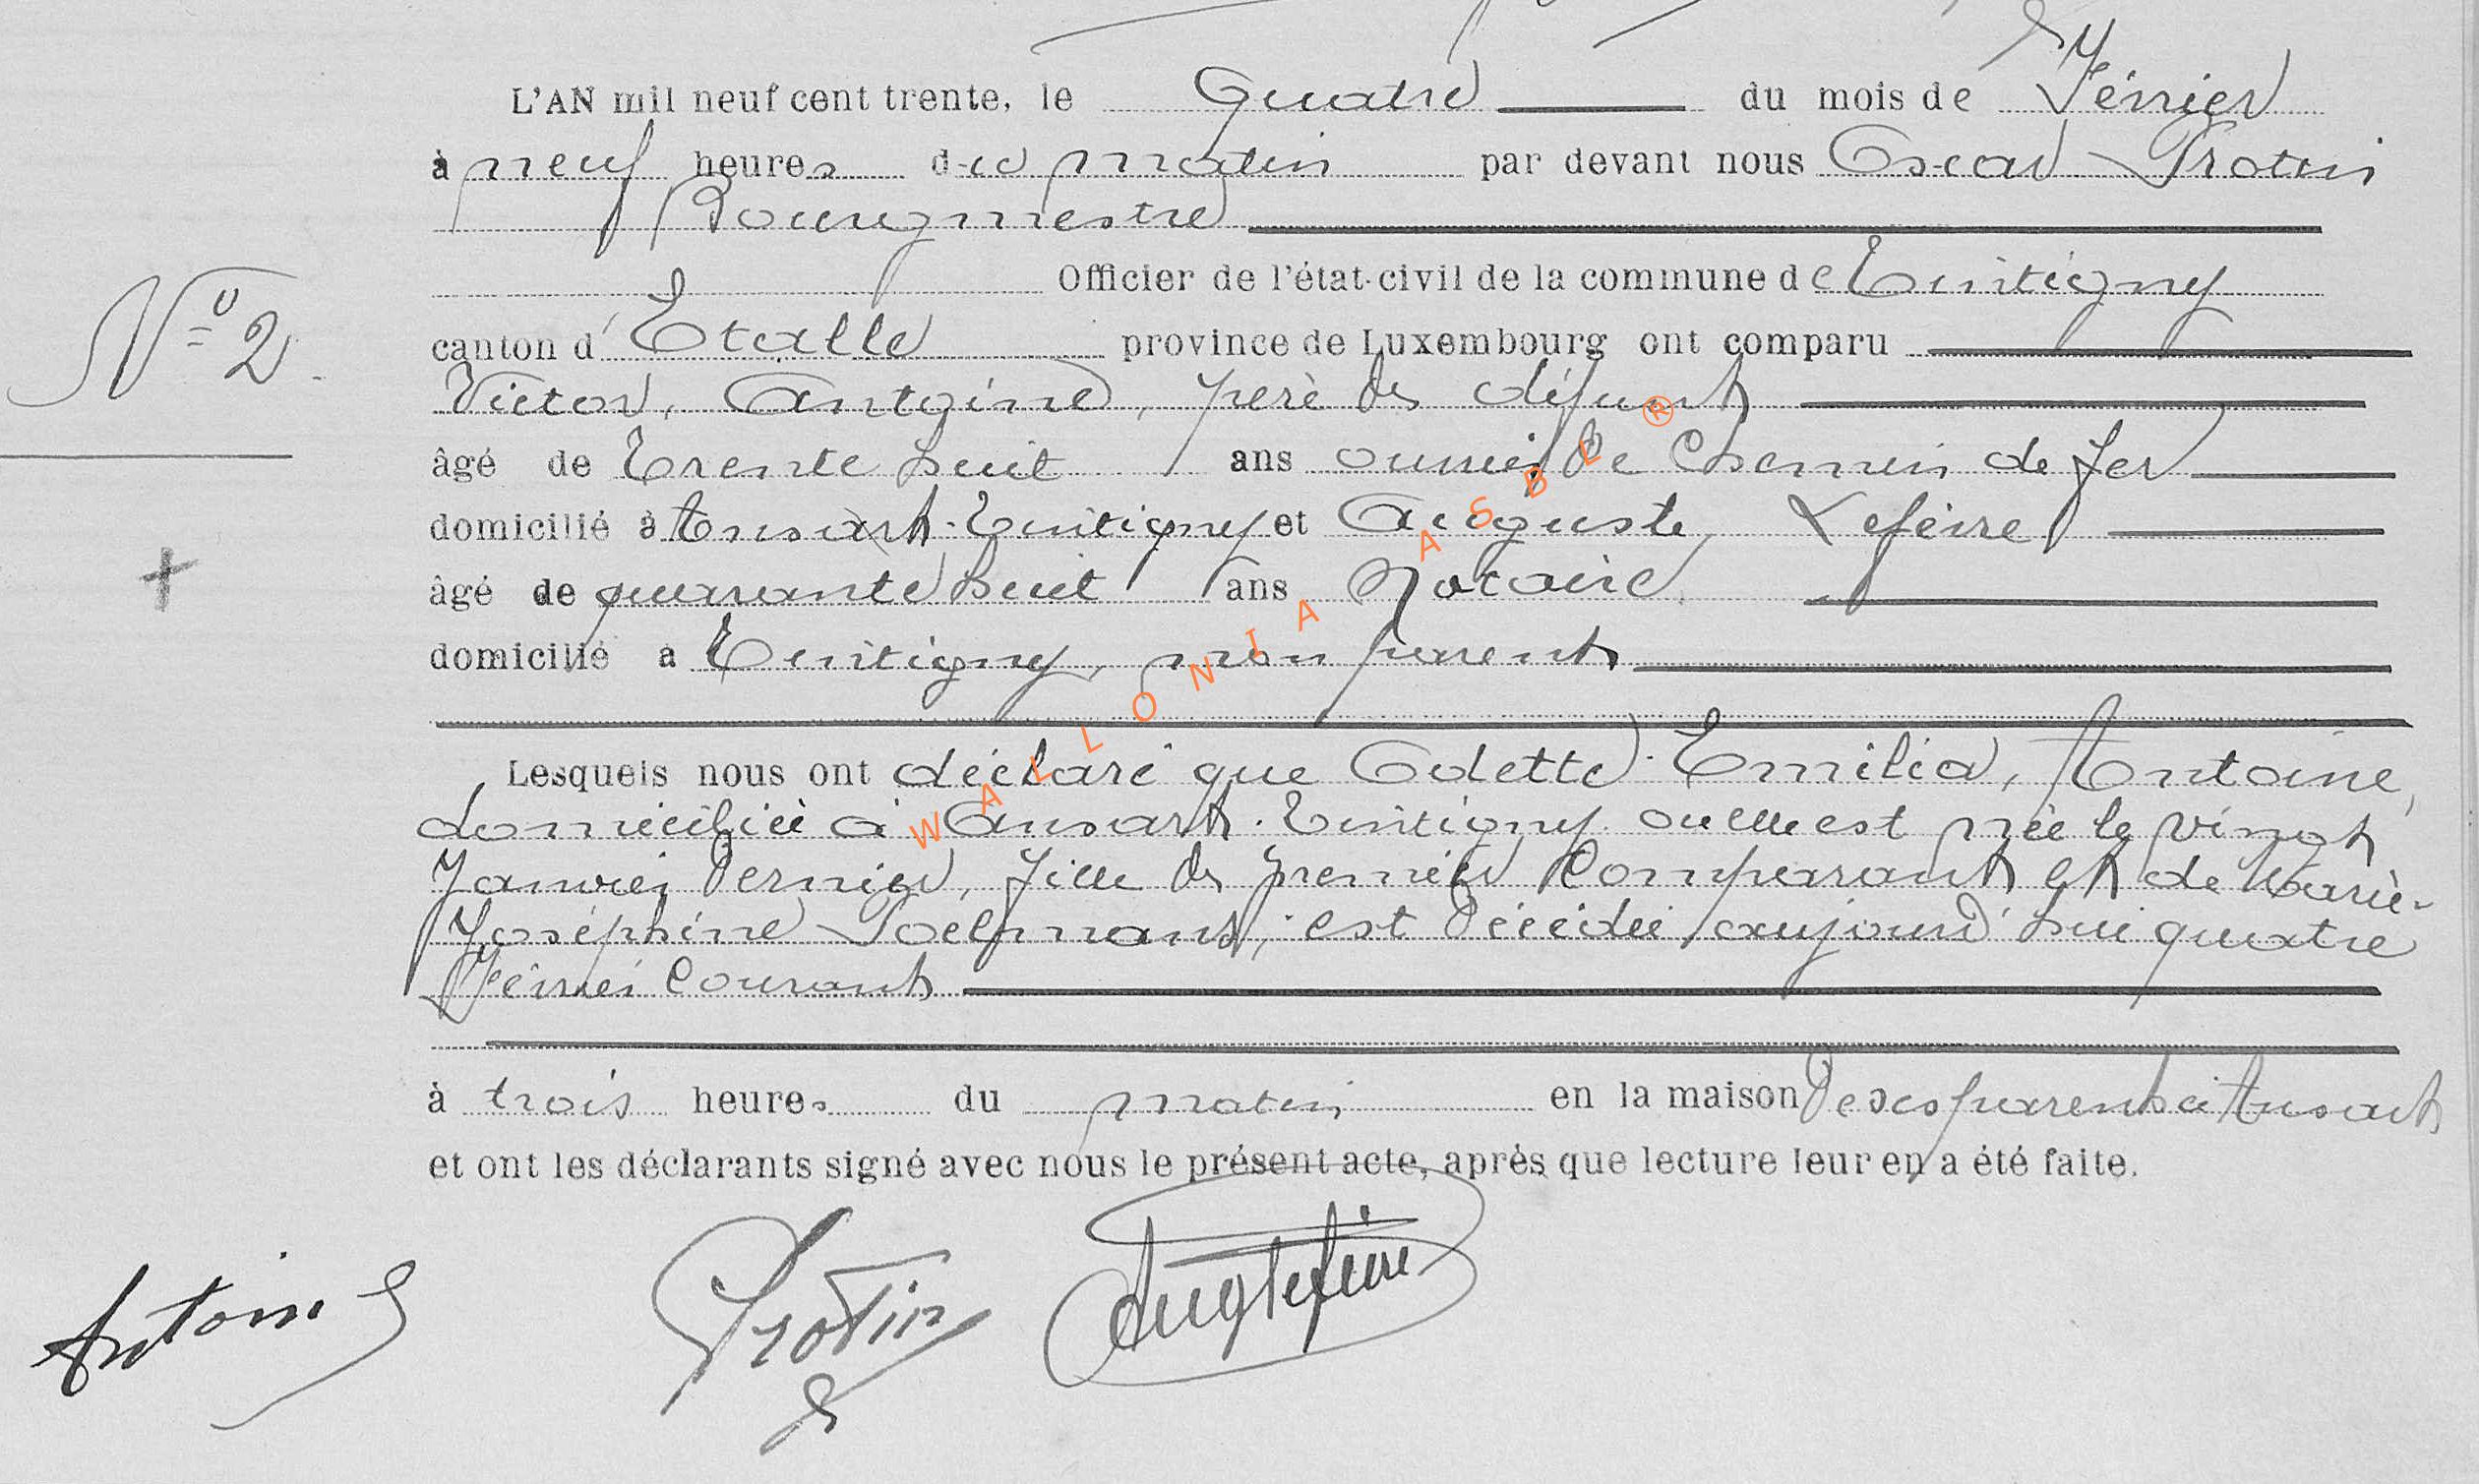 L'AN mil neuf cent trente, le Quatre du mois de Février
à neuf heures du matin par devant nous Oscar Protin
Bourgmestre
Officier de l'état-civil de la commune de Tintigny
N° 2
canton d'Etalle province de Luxembourg ont comparu
Victor, Antoine, père du défunt
âgé de Trente huit ans ouvrier de Chemin de fer
domicilié à Ansart-Tintigny et Auguste Lefèvre
âgé de quarante huit ans Notaire
domicilié à Tintigny, non parent
Lesquels nous ont déclaré que Odette-Emilia, Antoine,
domiciliée à Ansart-Tintigny où elle est née le vingt
Janvier dernier, fille du premier Comparant et de Marie-
Joséphine Poelmans, est décédée aujourd'hui quatre
Février Courant
à trois heures du matin en la maison de ses parents à Ansart
et ont les déclarants signé avec nous le présent acte, après que lecture leur en a été faite.
Antoine Protin Aug Lefèvre
WALLONIA ASBL ®